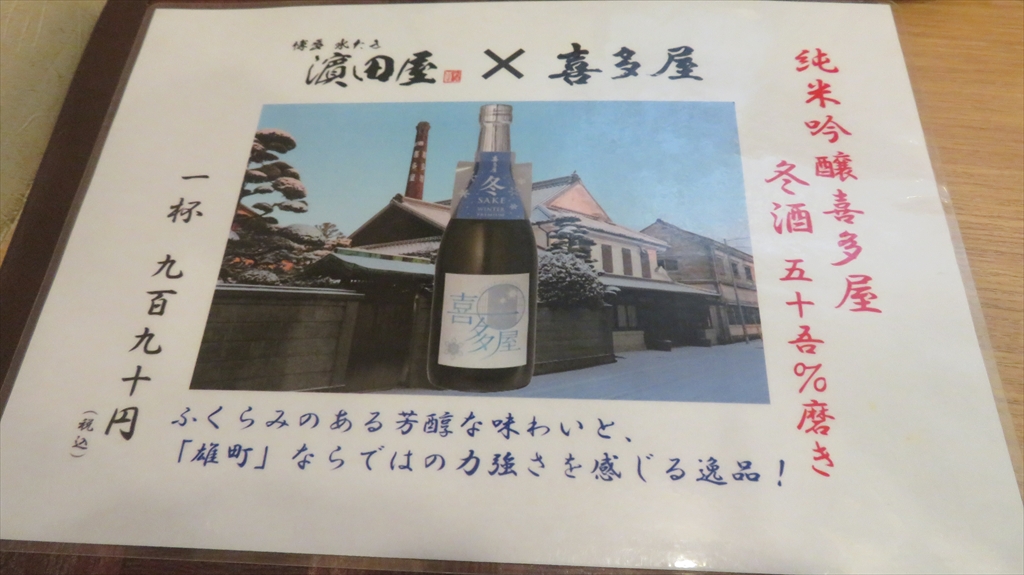 博多 水たき
濵田屋 × 喜多屋
純米吟醸喜多屋
冬酒 五十吾%磨き
冬
SAKE
WINTER
喜多屋
一杯 九百九十円
(税込)
ふくらみのある芳醇な味わいと、
「雄町」ならではの力強さを感じる逸品!